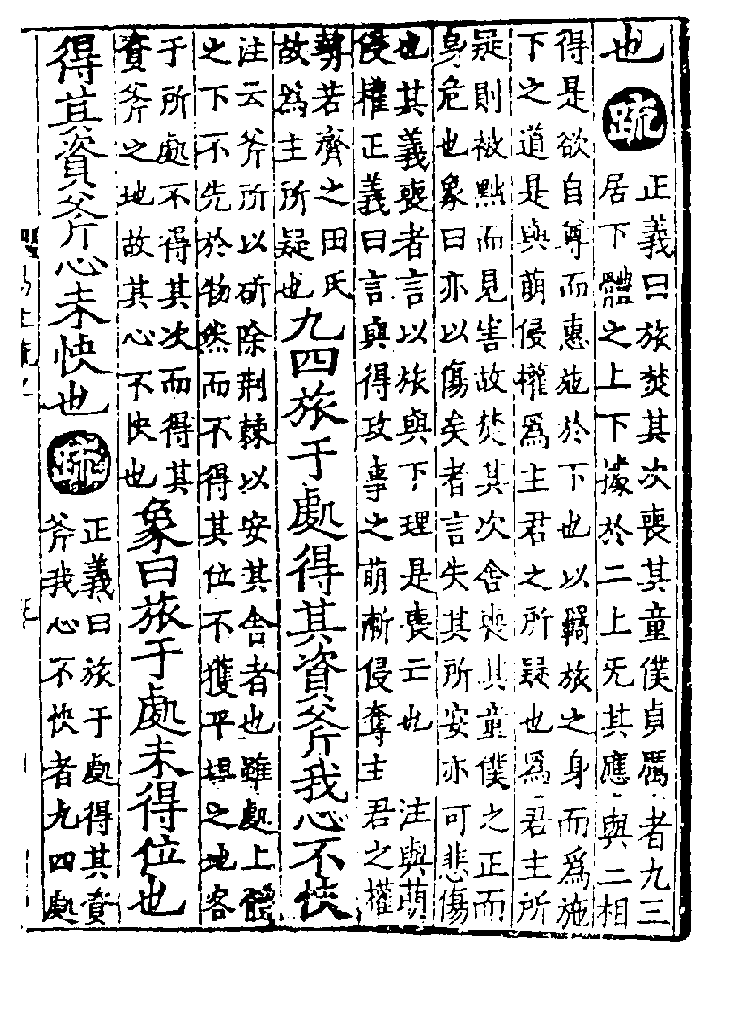 也疏
正義曰旅焚其次喪其童僕貞厲者九三
居下體之上下據於二上无其應與二相
得是欲自尊而惠施於下也以羇旅之身而爲施
下之道是與萌侵權爲主君之所疑也爲君主所
疑則被黜而見害故焚其次舍喪其童僕之正而
身危也象曰亦以傷矣者言失其所安亦可悲傷
也其義喪者言以旅與下理是喪亡也 注與萌
侵權正義曰言與得政事之萌漸侵奪主君之權
勢若齊之田氏
故爲主所疑也
九四旅于處得其資斧我心不快
注云斧所以斫除荆棘以安其舍者也雖處上體
之下不先於物然而不得其位不獲平坦之地客
于所處不得其次而得其
資斧之地故其心不快也
象曰旅于處未得位也
得其資斧心未快也疏
正義曰旅于處得其資
斧我心不快者九四處